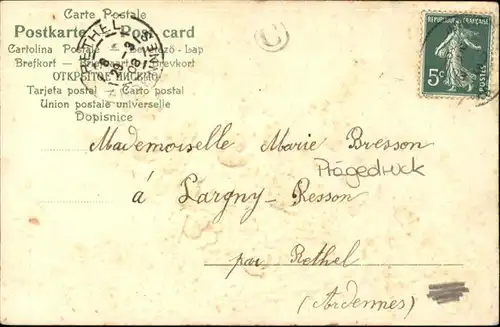 Carte Postale
Postkarte — Post card
Cartolina Postale — Levelező-lap
Brefkort — Briefkaart — Brevkort
ОТКРЫТОЕ ПИСЬМО
Tarjeta postal — Carto postal
Union postale universelle
Dopisnice
RETHEL
REPUBLIQUE FRANÇAISE
5c
POSTES
C
Mademoiselle Marie Bresson
Prägedruck
à Largny-Resson
par Rethel
(Ardennes)